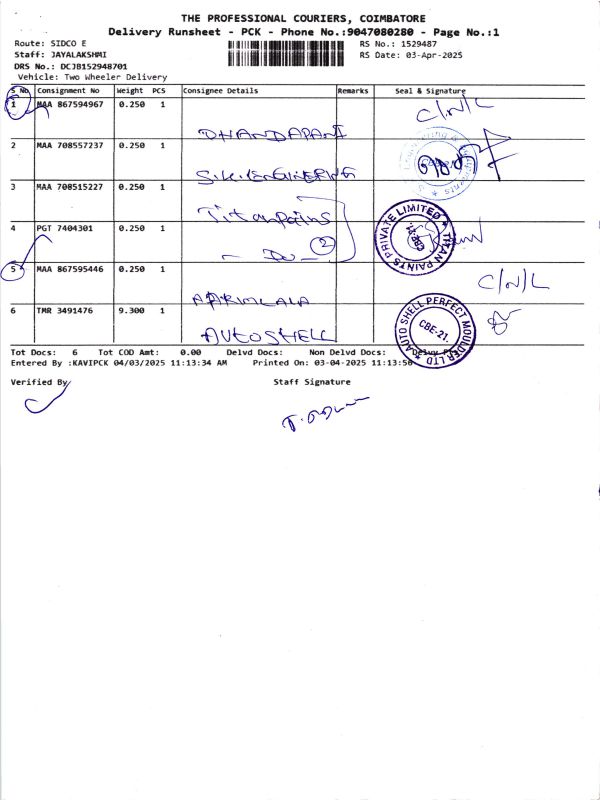 THE PROFESSIONAL COURIERS, COIMBATORE
Delivery Runsheet - PCK - Phone No.:9047080280 - Page No.:1
Route: SIDCO E RS No.: 1529487
Staff: JAYALAKSHMI RS Date: 03-Apr-2025
DRS No.: DCJB152948701
Vehicle: Two Wheeler Delivery
S No Consignment No Weight PCS Consignee Details Remarks Seal & Signature
1 MAA 867594967 0.250 1 C/N/L
DHANDAPANI
2 MAA 708557237 0.250 1
S.K.ENGINERING
3 MAA 708515227 0.250 1
Titan Pains
4 PGT 7404301 0.250 1
TITAN PAINTS PRIVATE LIMITED ★ CBE-21.
- Do - 2
5 MAA 867595446 0.250 1 C/N/L
APRIMLALA
6 TMR 3491476 9.300 1
AUTOSHELL
AUTO SHELL PERFECT MOULDER LTD ★ CBE-21.
Tot Docs: 6 Tot COD Amt: 0.00 Delvd Docs: Non Delvd Docs:
Entered By :KAVIPCK 04/03/2025 11:13:34 AM Printed On: 03-04-2025 11:13:56
Verified By Staff Signature